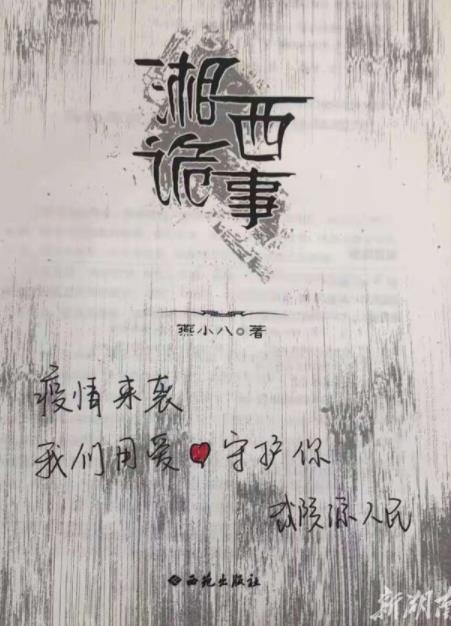 湘西诡事
燕小八◎著
疫情来袭
我们用爱守护你
武陵源人民
西苑出版社
新湖南